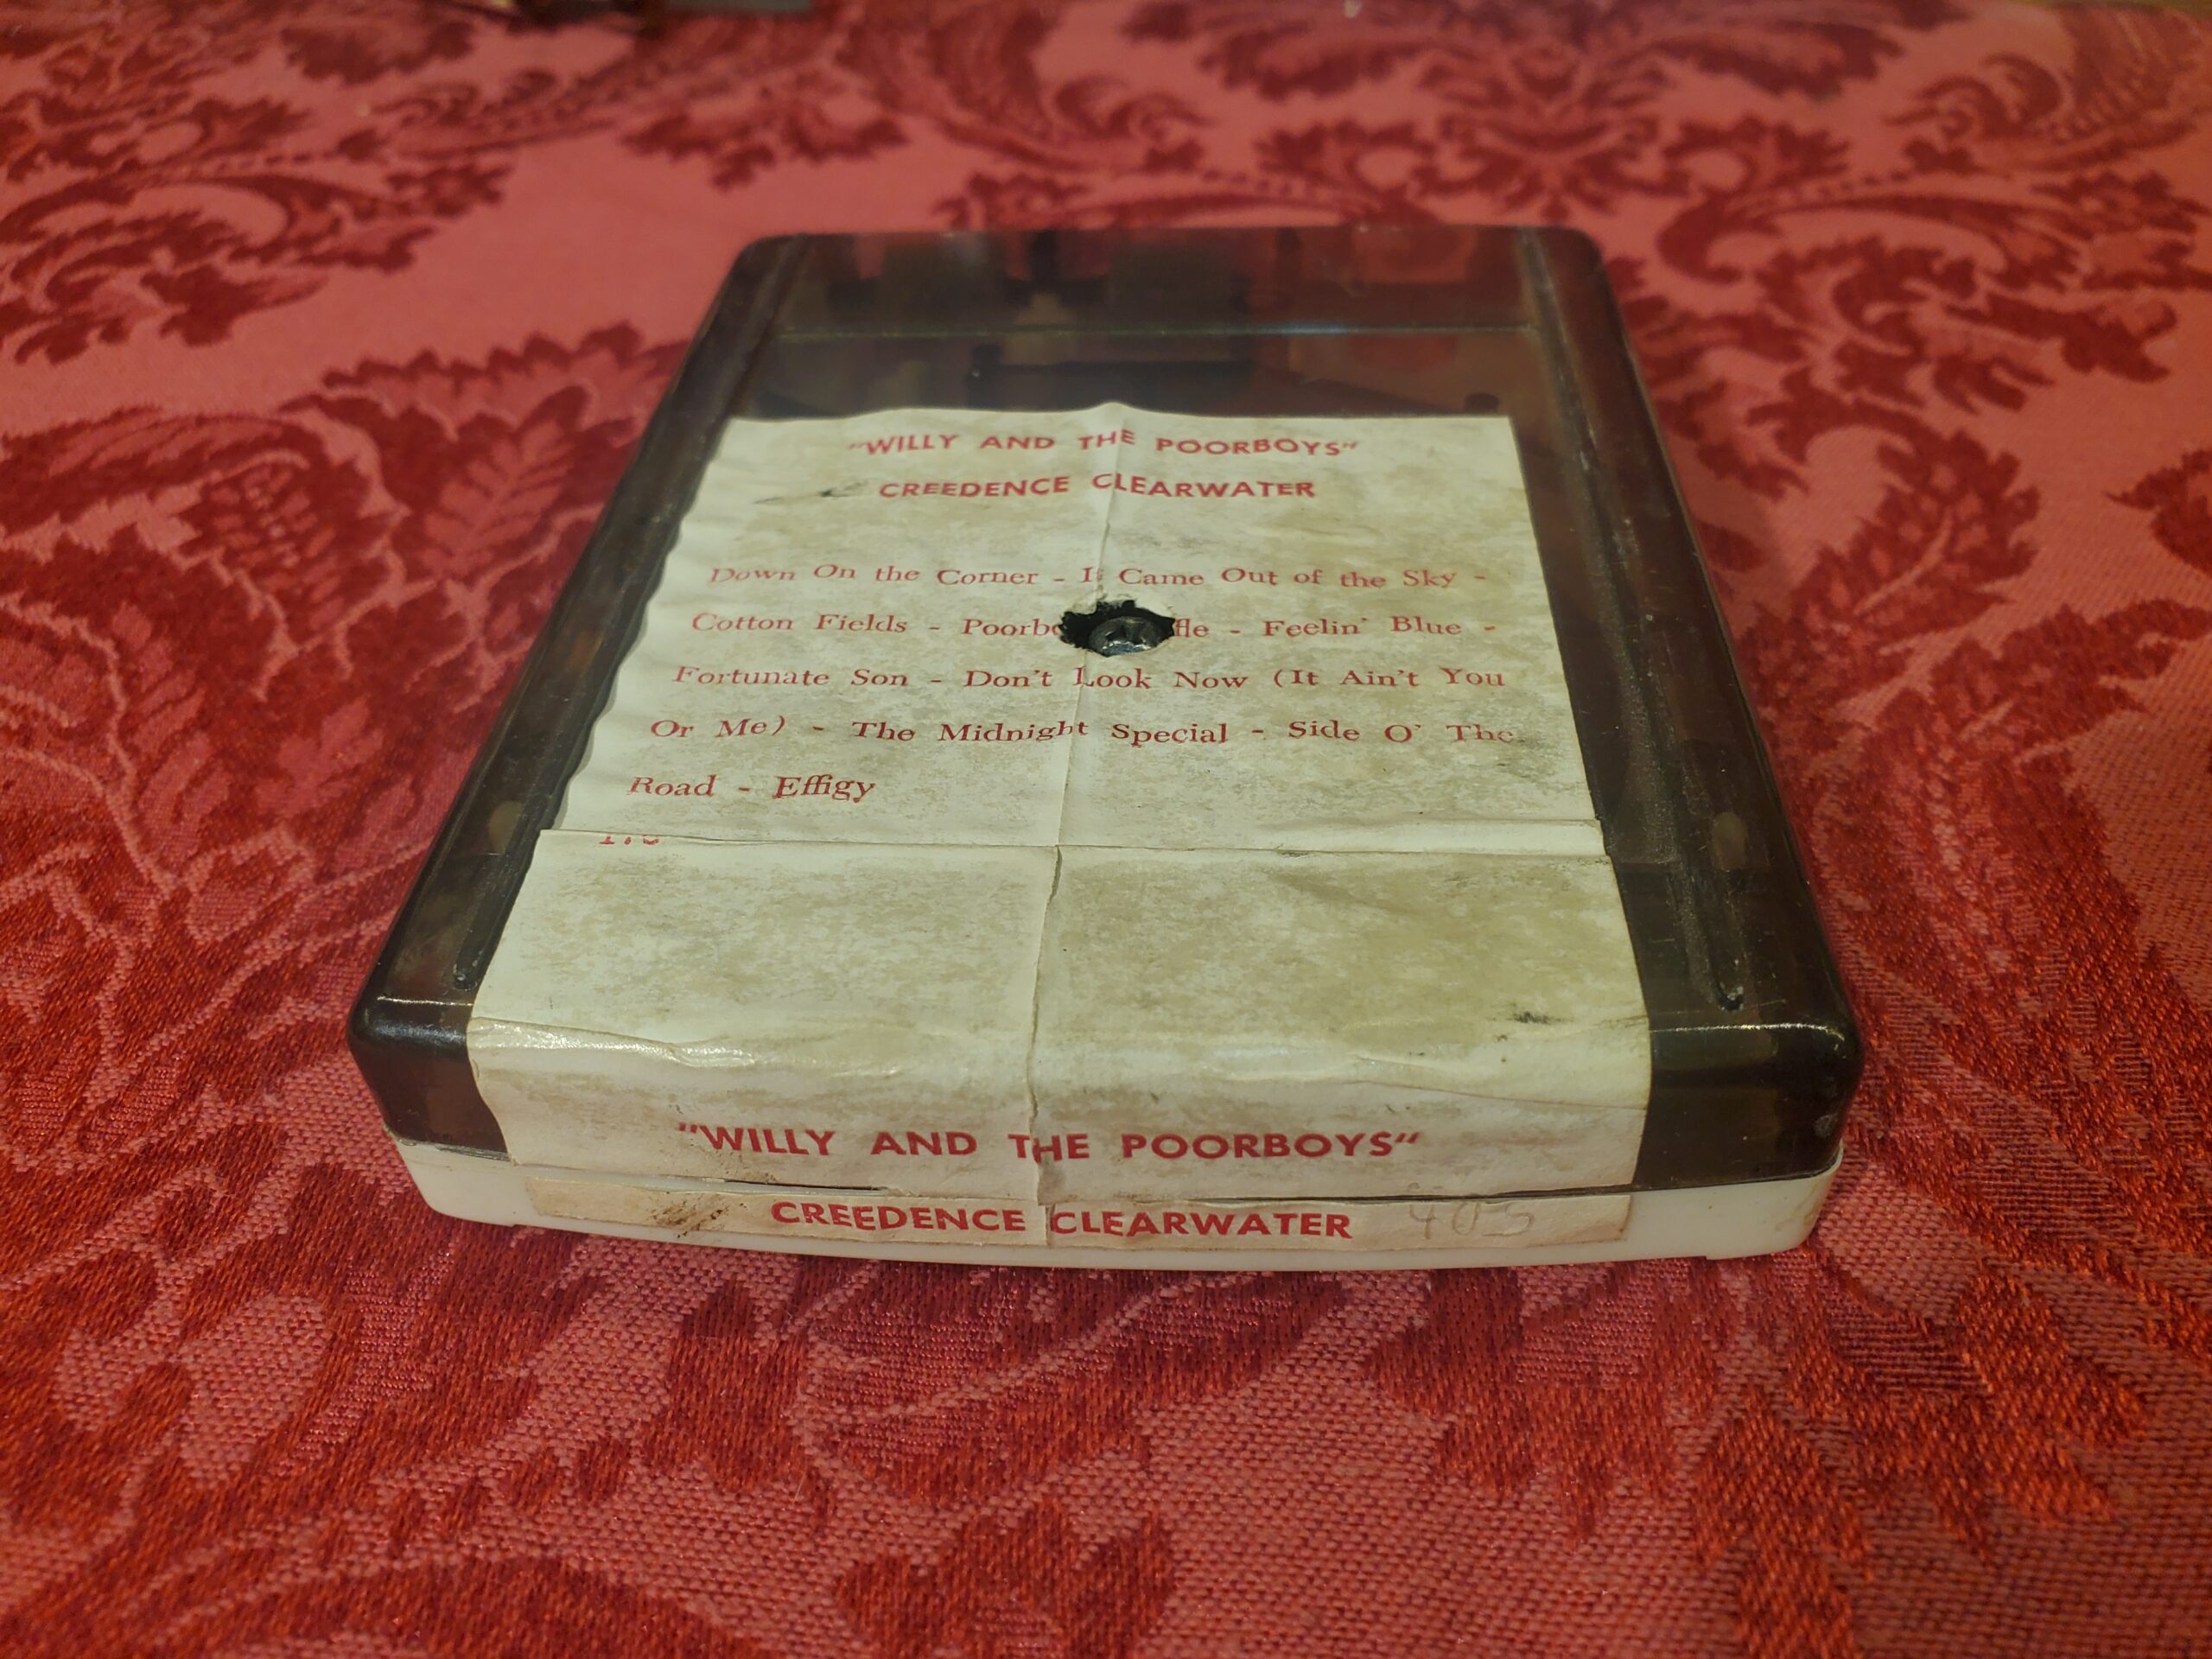 "WILLY AND THE POORBOYS"
CREEDENCE CLEARWATER
Down On the Corner - It Came Out of the Sky -
Cotton Fields - Poorbo fle - Feelin' Blue -
Fortunate Son - Don't Look Now (It Ain't You
Or Me) - The Midnight Special - Side O' The
Road - Effigy
"WILLY AND THE POORBOYS"
CREEDENCE CLEARWATER 405